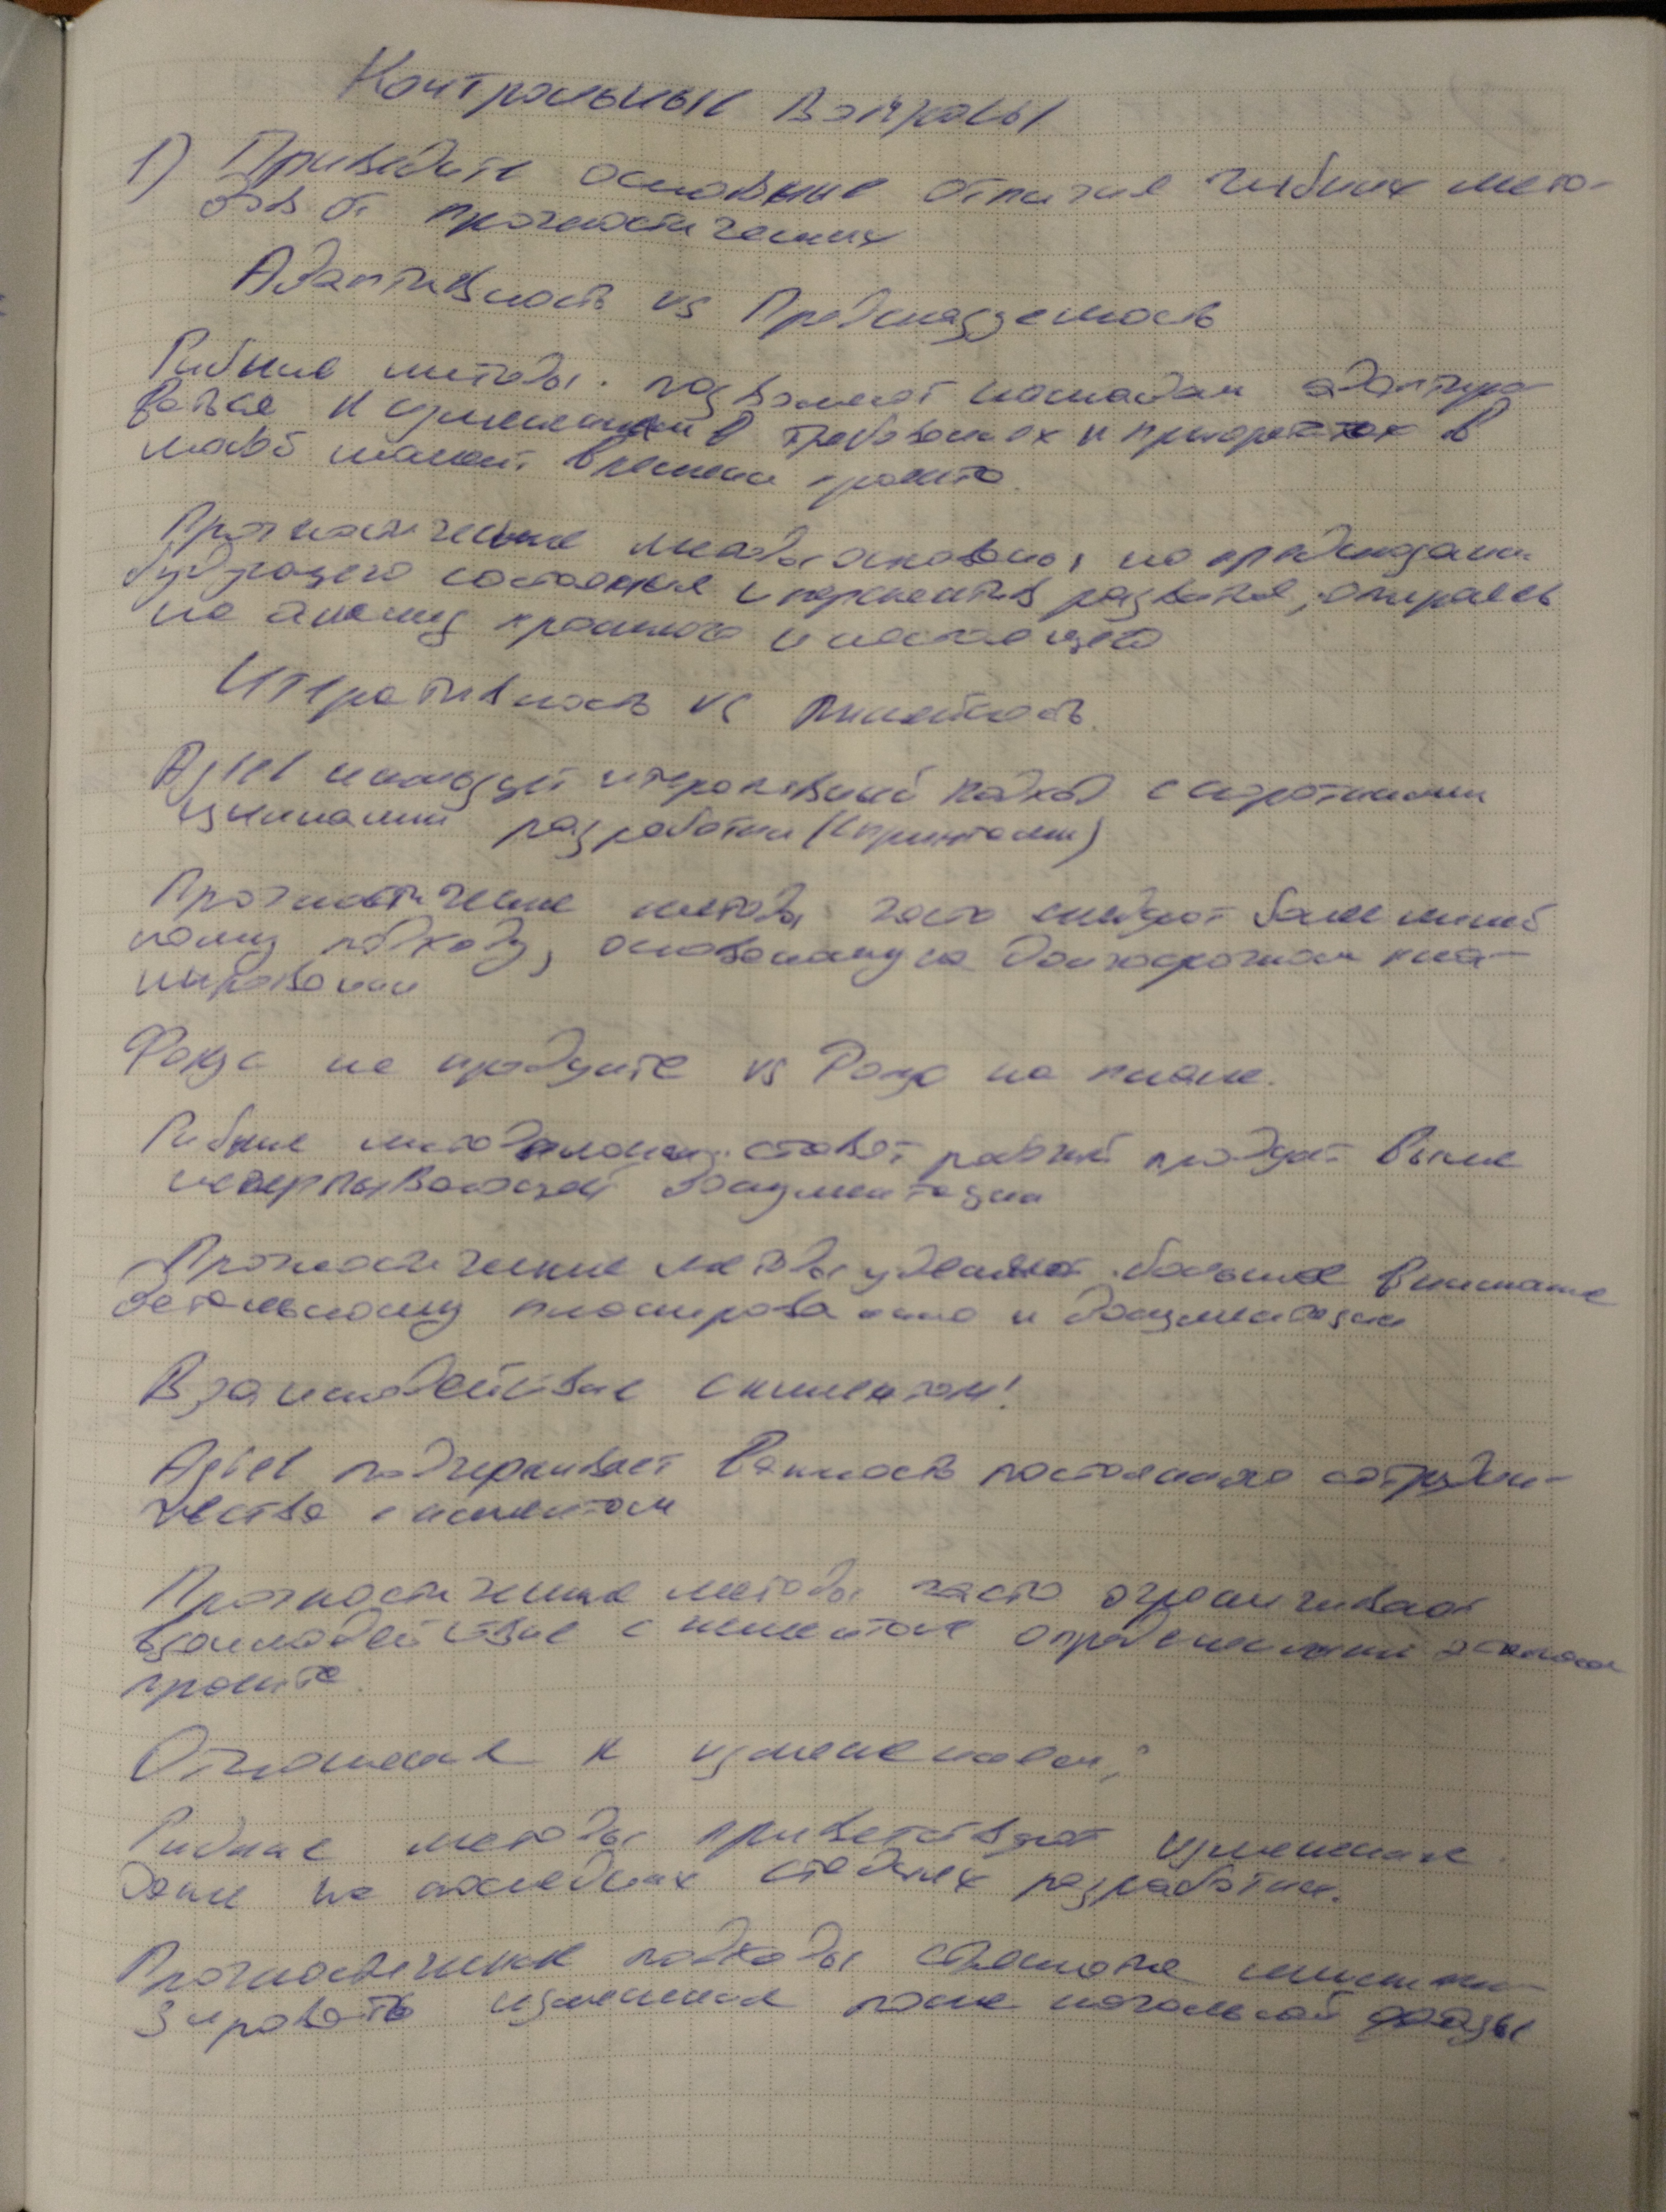 Контрольные вопросы
1) Приведите основные отличия гибких мето-
дов от прогностических
Адаптивность vs Предсказуемость
Гибкие методы позволяют командам адаптиро-
ваться к изменениям в требованиях и приоритетах в
любой момент времени проекта.
Прогностические методы основаны на предсказании
будущего состояния и перспектив развития, опираясь
на анализ прошлого и настоящего
Итеративность vs Линейность.
Agiel использует итеративный подход с короткими
циклами разработки (спринтами)
Прогностические методы часто следуют более линей
ному подходу, основанному на долгосрочном пла-
нировании
Фокус на продукте vs Фокус на плане.
Гибкие методологии ставят рабочий продукт выше
исчерпывающей документации
Прогностические методы уделяют большое внимание
детальному планированию и документации
Взаимодействие с клиентом:
Agiel подчеркивает важность постоянного сотрудни-
чества с клиентом
Прогностические методы часто ограничивают
взаимодействие с клиентом определенными этапами
проекта.
Отношение к изменениям:
Гибкие методы приветствуют изменения
даже на последних стадиях разработки.
Прогностические подходы стремятся миними-
зировать изменения после начальной фазы